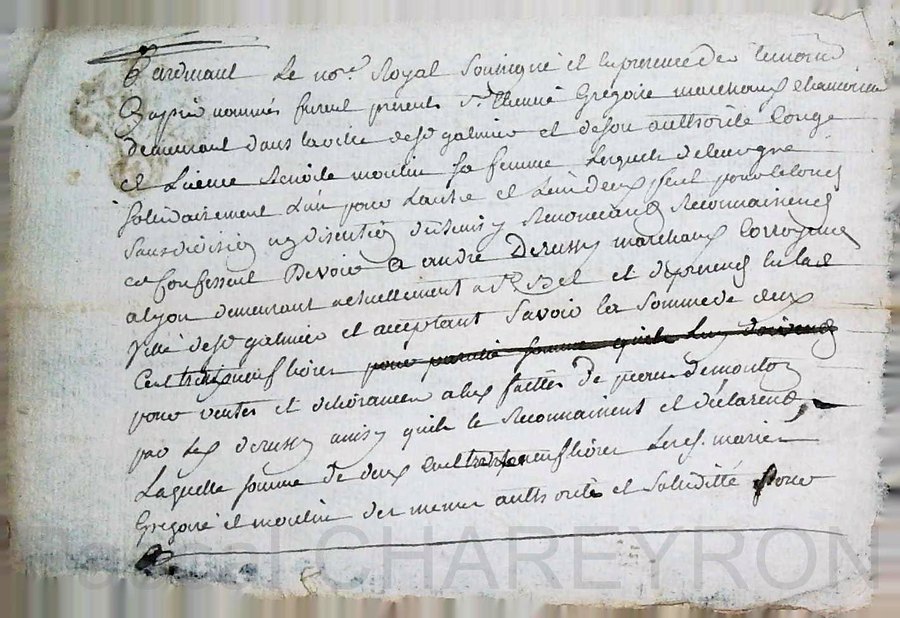 Pardevant Le no.re Royal Soussigné et en presence des temoins
Cy apres nommés furent presents Sr. Etienne Gregoire marchand chamoiseur
demeurant dans la ville de St galmier et de son authorité Conge
et Licence Benoite moulin sa femme Lesquels de leur gre
solidairement L'un pour L'autre et L'un deux seul pour le tout
sans division ny discution du tems y Renonceand Reconnaissend
et Confessent Devoir a andre Derussy marchand Corroyeur
a Lyon demeurant actuellement a et de present en lad
ville de St galmier et acceptant Savoir la Somme de deux
Cent trente neuf livres pour pareille somme quils Luy doivend
pour ventes et delivrances a eux faittes de peaux de mouton
par led derussy ainsy quils le Reconnaissent et declarend,
Laquelle somme de deux Cent trente neuf livres Lesd. mariés
Gregoire et moulin des memes authorité et solidité pour
Pascal CHAREYRON